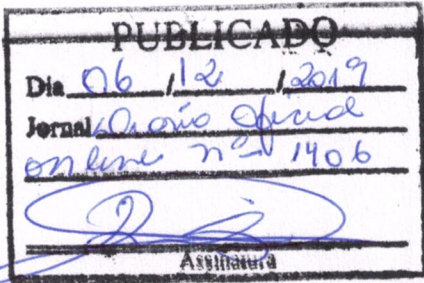 PUBLICADO
Dia 06 / 12 / 2019
Jornal Diário Oficial
online nº 1406
Assinatura